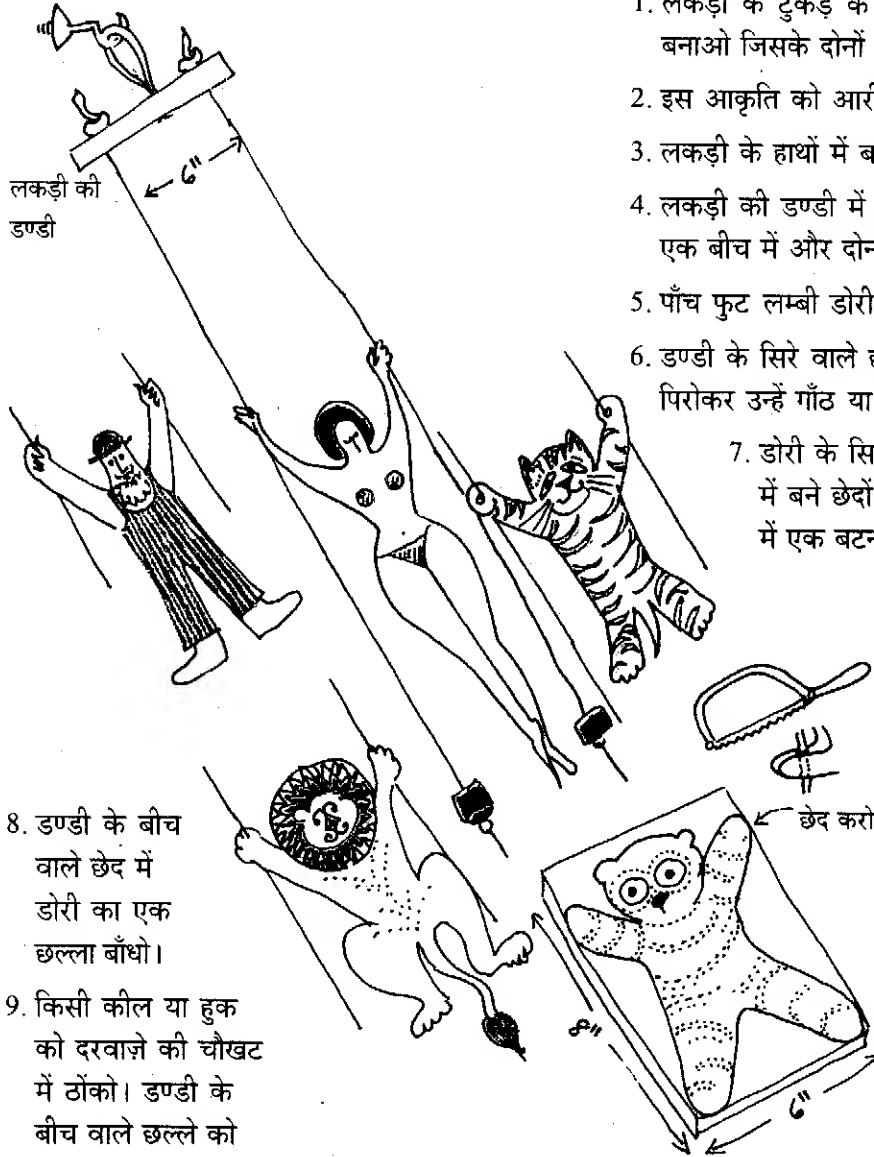 1. लकड़ी के टुकड़े के
बनाओ जिसके दोनों
2. इस आकृति को
3. लकड़ी के हाथों में
4. लकड़ी की डण्डी में
एक बीच में और
5. पाँच फुट लम्बी डोरी
6. डण्डी के सिरे वाले
पिरोकर उन्हें गाँठ या
7. डोरी के
में बने छेदों
में एक बटन
6"
लकड़ी की
डण्डी
छेद करो
8"
6"
8. डण्डी के बीच
वाले छेद में
डोरी का एक
छल्ला बाँधो।
9. किसी कील या हुक
को दरवाज़े की चौखट
में ठोंको। डण्डी के
बीच वाले छल्ले को